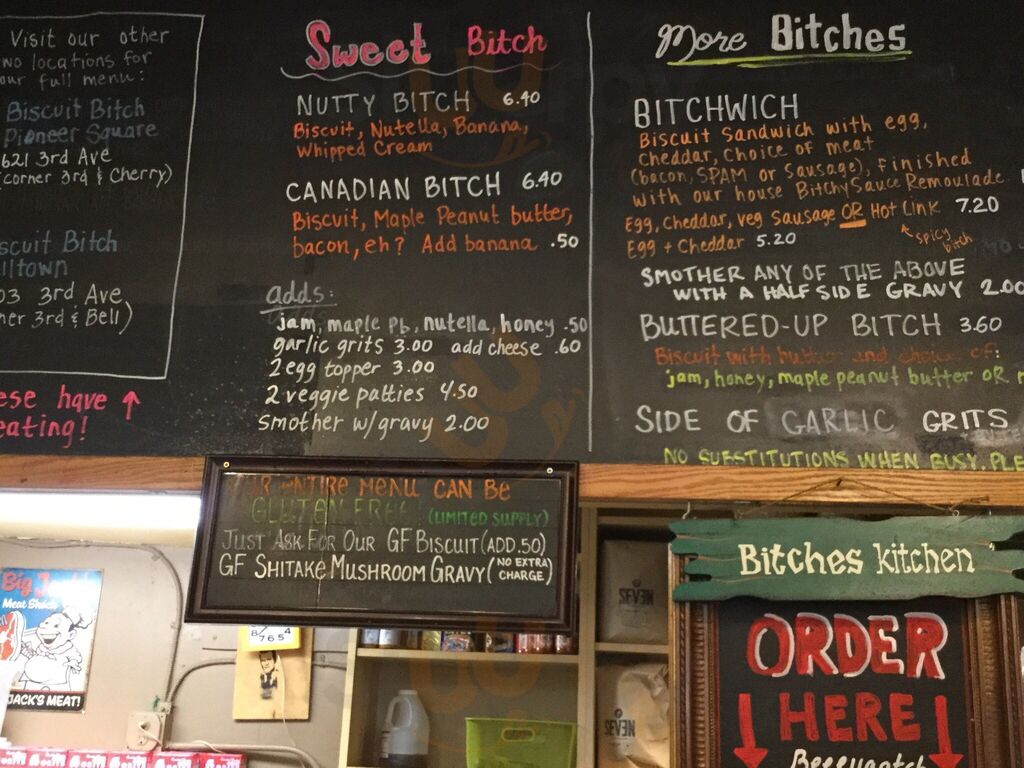 Visit our other
locations for
our full menu:
Biscuit Bitch
Pioneer Square
621 3rd Ave
(corner 3rd & Cherry)
Bitch
3rd Ave
3rd & Bell)
have ↑
eating!
Sweet Bitch
NUTTY BITCH 6.40
Biscuit, Nutella, Banana,
Whipped Cream
CANADIAN BITCH 6.40
Biscuit, Maple Peanut butter,
bacon, eh? Add banana .50
adds:
jam, maple Pb, nutella, honey .50
garlic grits 3.00 add cheese .60
2 egg topper 3.00
2 veggie patties 4.50
smother w/gravy 2.00
More Bitches
BITCHWICH
Biscuit Sandwich with egg,
cheddar, choice of meat
(bacon, SPAM or Sausage), Finished
with our house BitchySauce Remoulade
Egg, Cheddar, veg Sausage OR Hot Link 7.20
Egg + Cheddar 5.20
spicy
bitch
SMOTHER ANY OF THE ABOVE
WITH A HALF SIDE GRAVY 2.00
BUTTERED-UP BITCH 3.60
Biscuit with butter and choice of:
jam, honey, maple peanut butter OR
SIDE OF GARLIC GRITS
NO SUBSTITUTIONS WHEN BUSY.
ENTIRE MENU CAN BE
GLUTAN FREE (LIMITED SUPPLY)
JUST ASK FOR OUR GF BISCUIT (ADD .50)
GF SHITAKE MUSHROOM GRAVY (NO EXTRA
CHARGE)
Bitches kitchen
ORDER
HERE
Beeeyaatch
Big
Meat Shack
JACK'S MEAT!
8765
SEVEN
SEVEN